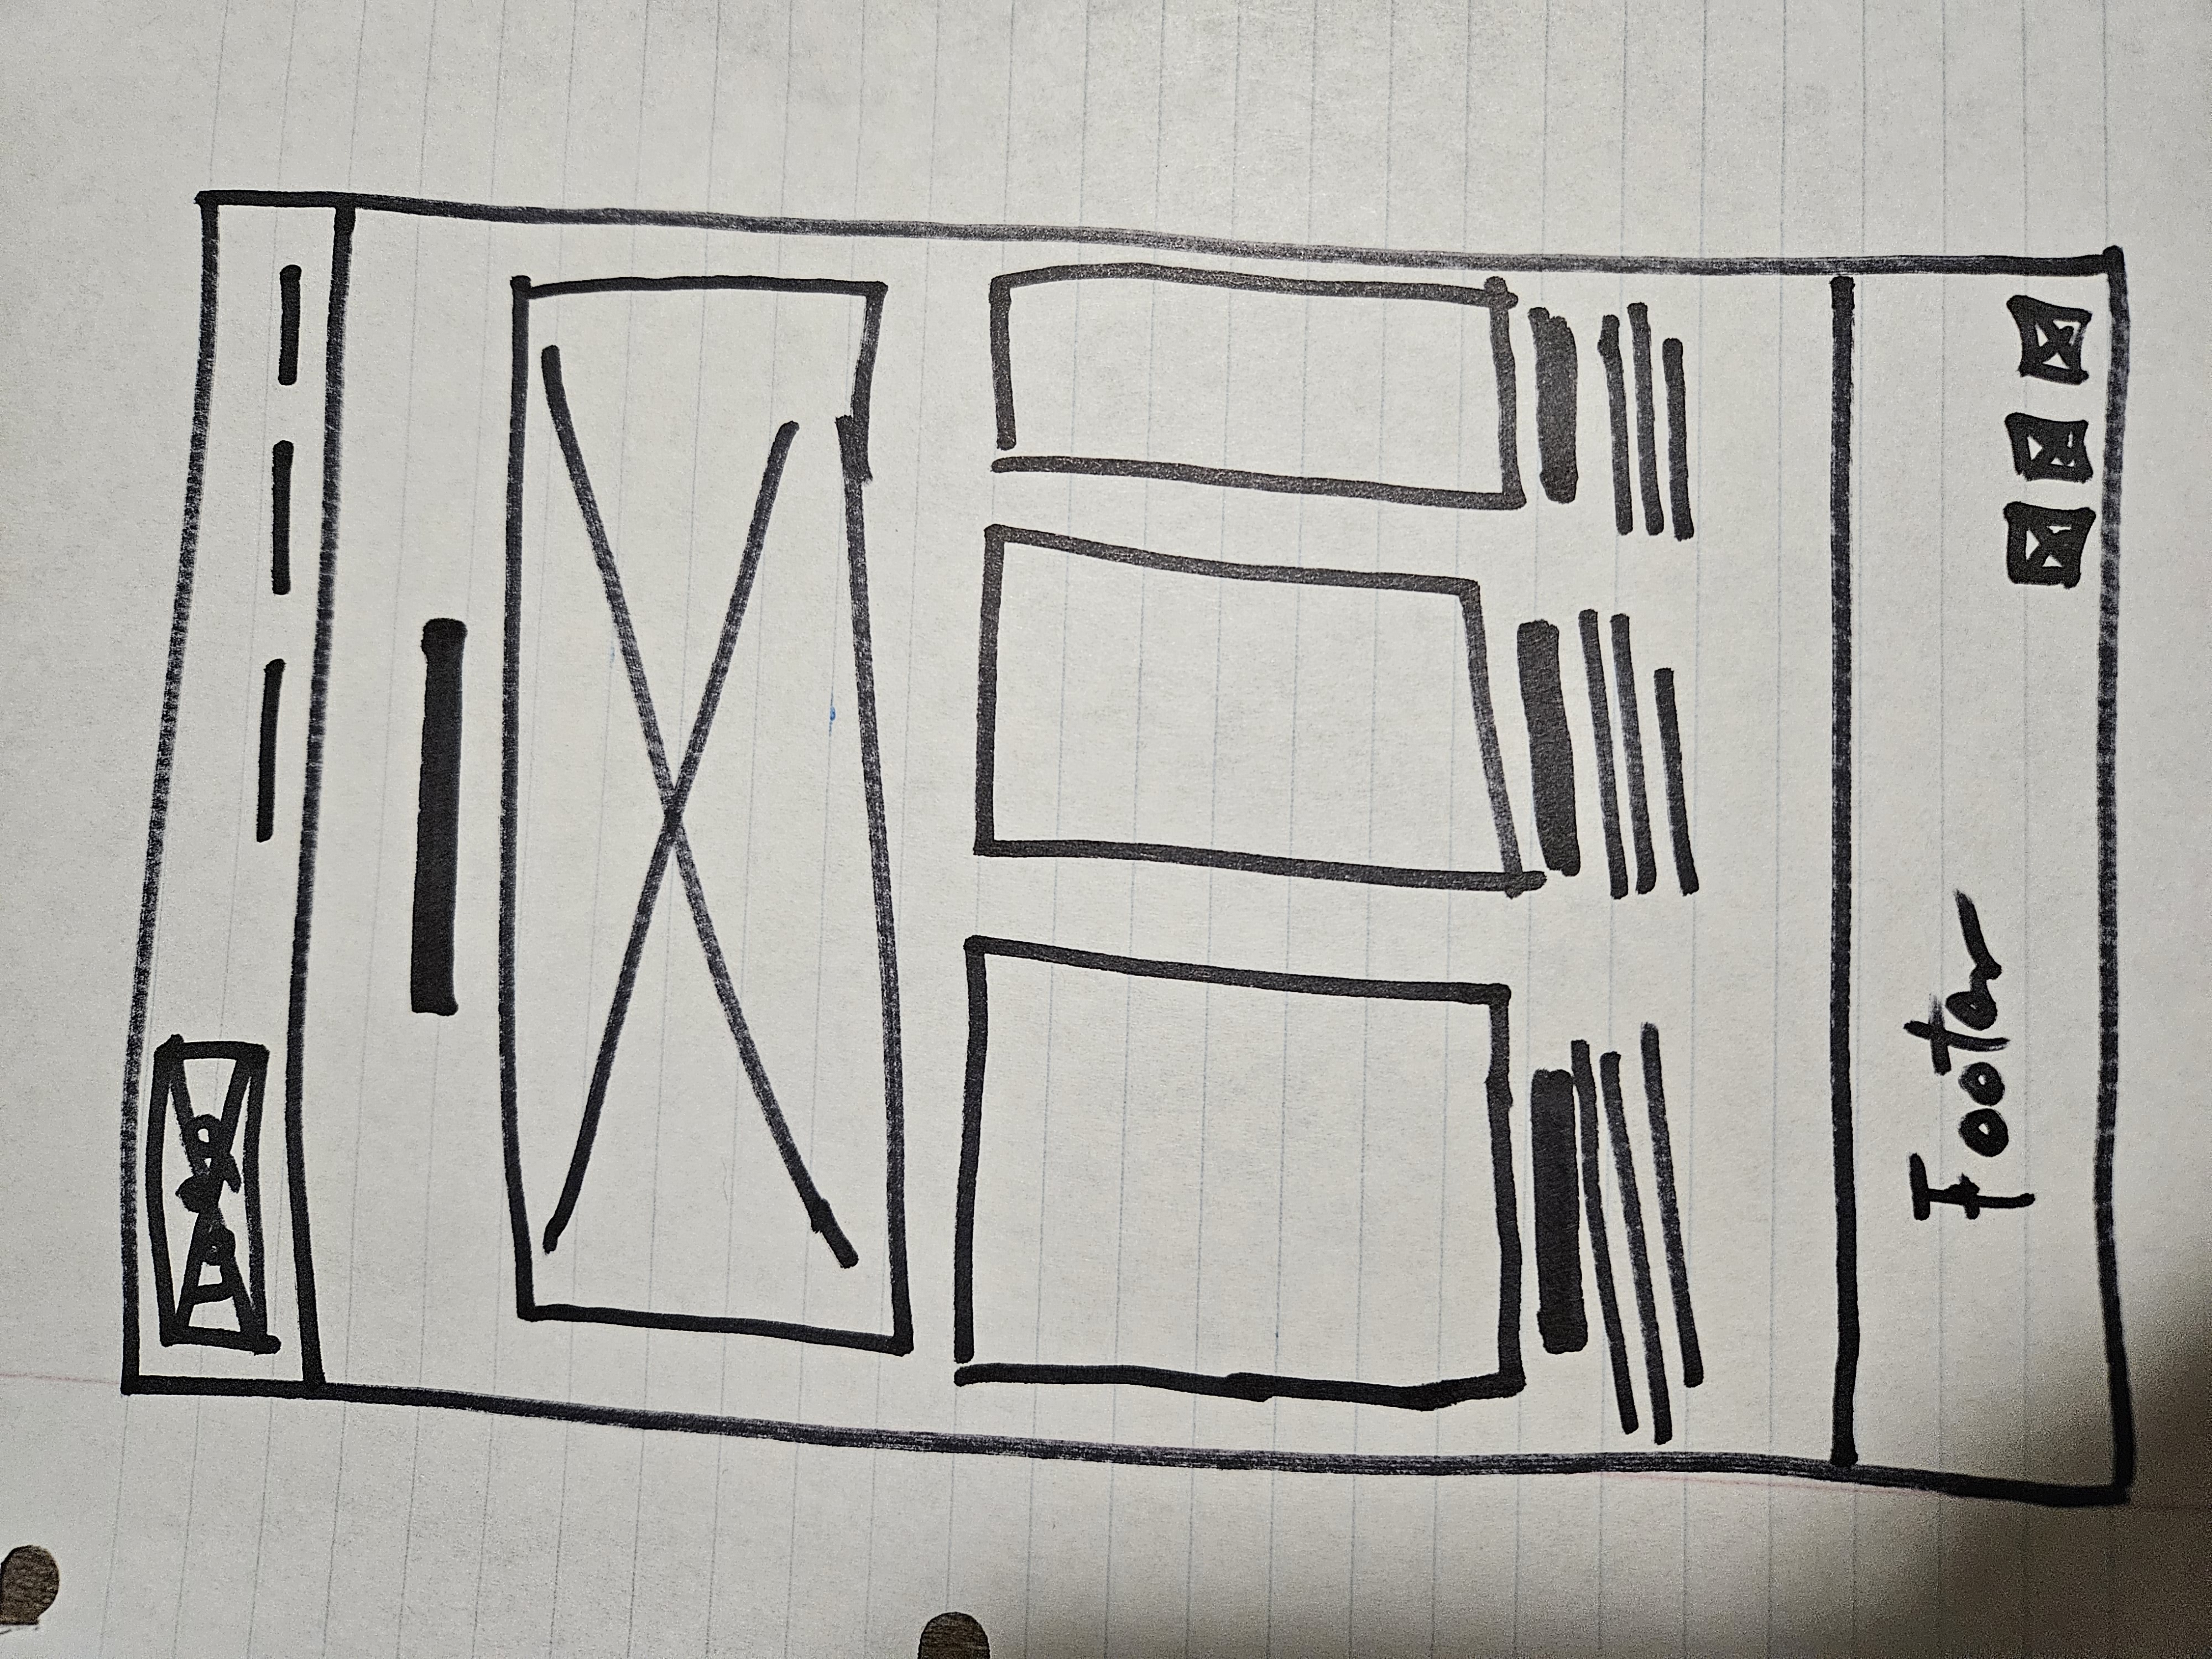 Logo
Footer